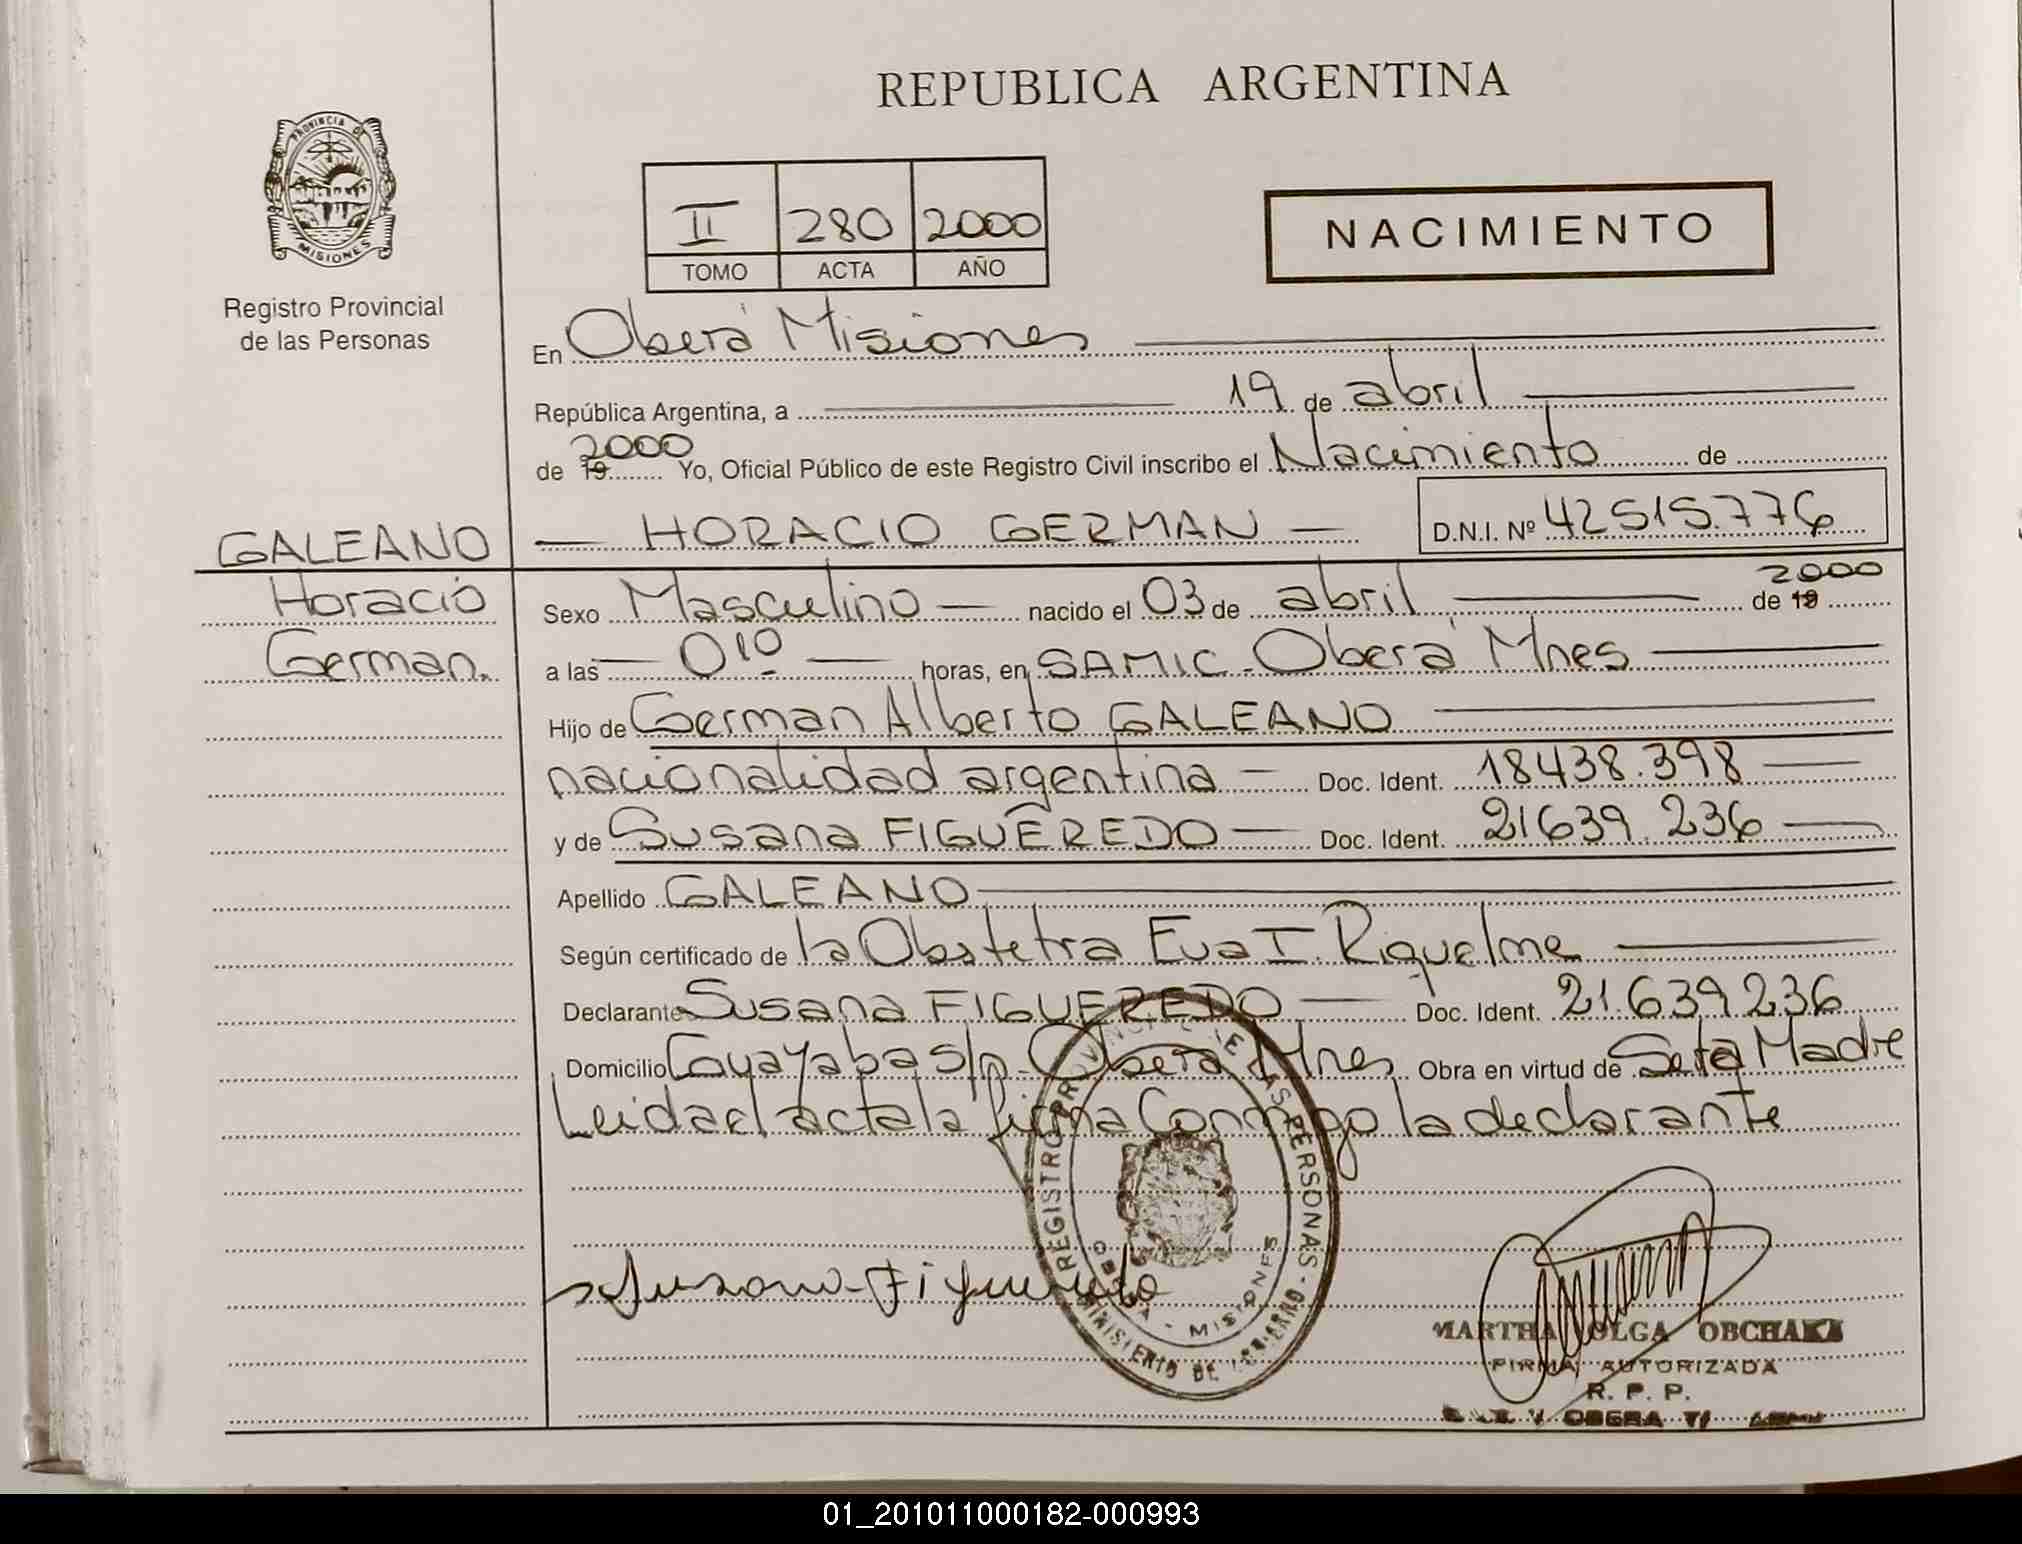 REPUBLICA ARGENTINA
PROVINCIA DE
MISIONES
Registro Provincial
de las Personas
II 280 2000
TOMO ACTA AÑO
NACIMIENTO
En Oberá Misiones
República Argentina, a 19 de abril
de 19 2000 Yo, Oficial Público de este Registro Civil inscribo el Nacimiento de
GALEANO
HORACIO GERMAN D.N.I. Nº 42515.776
Horacio
German.
Sexo Masculino nacido el 03 de abril de 19 2000
a las 0 10 horas, en SAMIC. Oberá Mnes
Hijo de German Alberto GALEANO
nacionalidad argentina Doc. Ident. 18438.398
y de Susana FIGUEREDO Doc. Ident. 21639.236
Apellido GALEANO
Según certificado de la Obstetra Eva I. Riquelme
Declarante Susana FIGUEREDO Doc. Ident. 21.639.236
Domicilio Guayaba s/n. Oberá Mnes Obra en virtud de Ser la Madre
Leida el acta la firma Conmigo la declarante
REGISTRO PROVINCIAL DE LAS PERSONAS - MINISTERIO DE GOBIERNO
OBERA - MISIONES
Susana Figueredo
MARTHA OLGA OBCHAKI
FIRMA AUTORIZADA
R. P. P.
OBERA
01_201011000182-000993